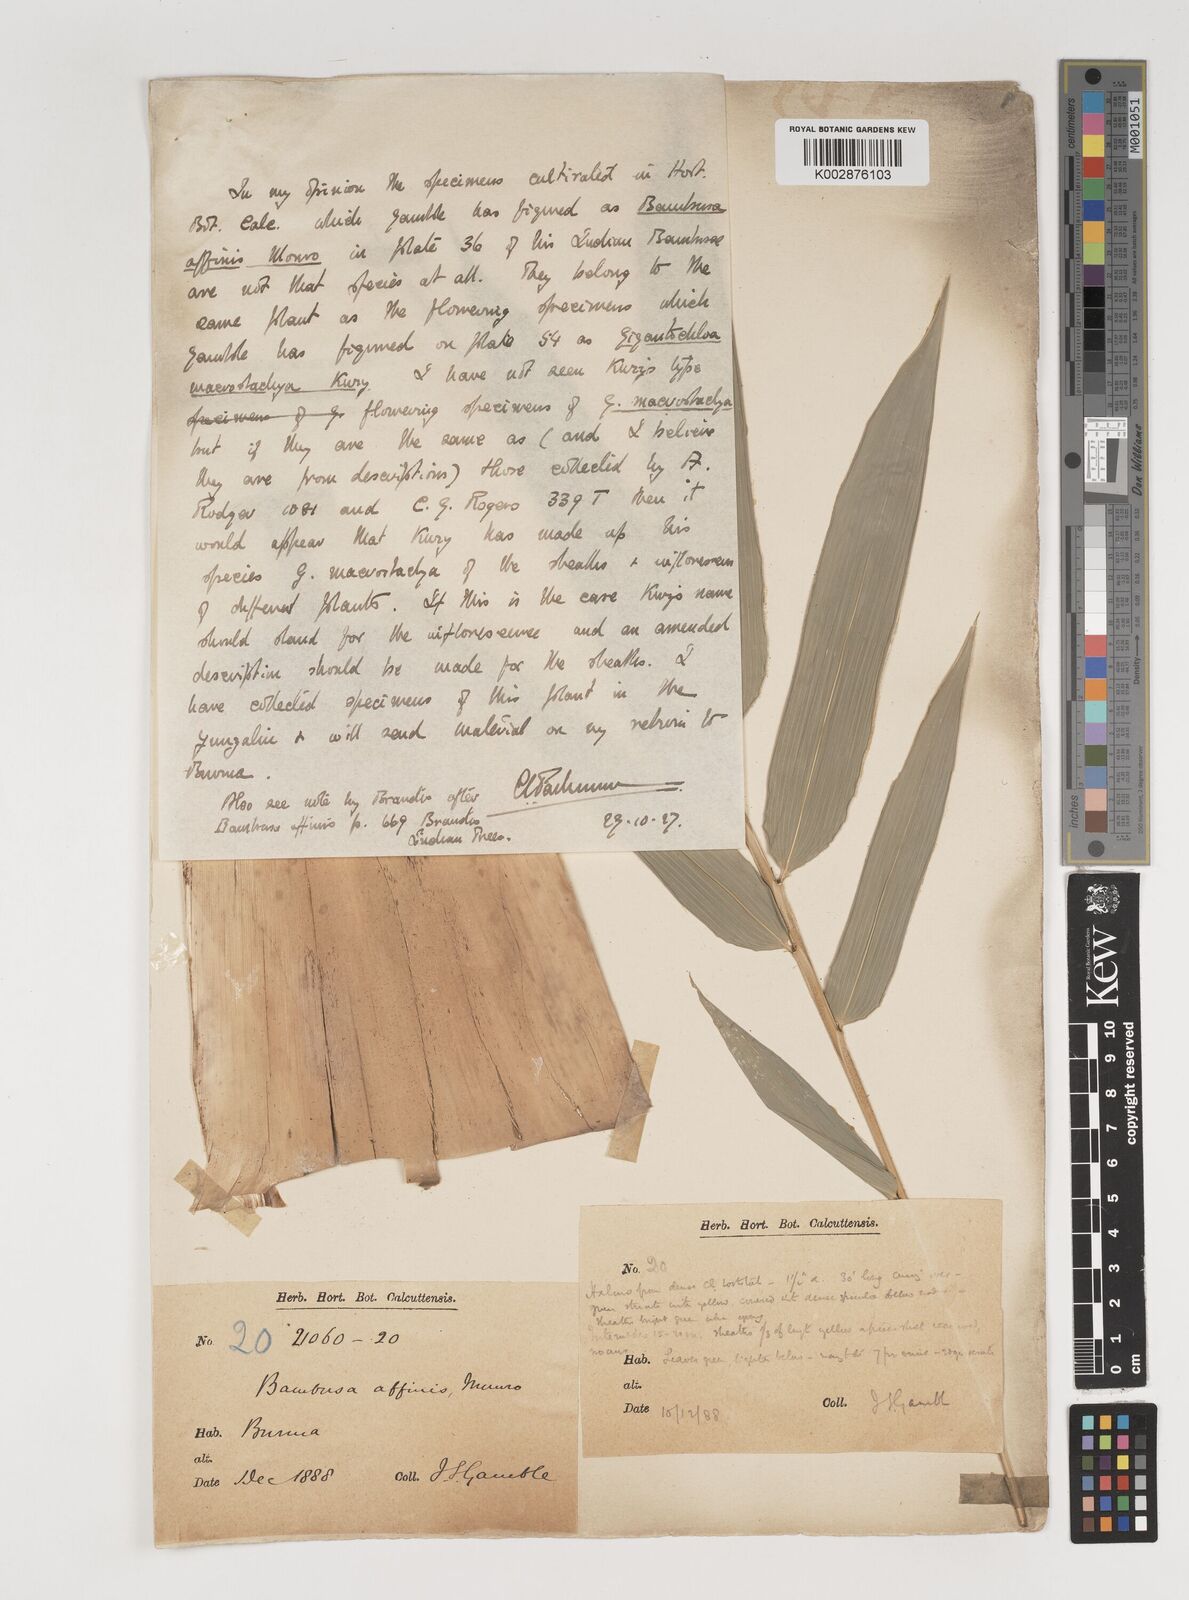 ROYAL BOTANIC GARDENS KEW
K002876103
In my opinion the specimens cultivated in Hort.
Bot. Calc. which Gamble has figured as Bambusa
affinis Munro in plate 36 of his Indian Bambusae
are not that species at all. They belong to the
same plant as the flowering specimens which
Gamble has figured on plate 54 as Gigantochloa
macrostachya Kurz. I have not seen Kurz's type
specimens of G. flowering specimens of G. macrostachya
but if they are the same as (and I believe
they are from descriptions) those collected by A.
Rodger 1081 and C. G. Rogers 339 T then it
would appear that Kurz has made up his
species G. macrostachya of the sheaths + inflorescence
of different plants. If this is the case Kurz's name
should stand for the inflorescence and an amended
description should be made for the sheaths. I
have collected specimens of this plant in the
Yungalin + will send material on my return to
Burma.
Also see note by Brandis after
Bambusa affinis p. 669 Brandis
Indian Trees.
29.10.27.
Herb. Hort. Bot. Calcuttensis.
No. 20 21060-20
Bambusa affinis, Munro
Hab. Burma
alt.
Date Dec 1888 Coll. J.S. Gamble
Herb. Hort. Bot. Calcuttensis.
No. 20
Halms from dense 30' long
green striate with yellow, covered dense
sheaths bright green when young
internodes 15-20 in, sheaths 2/3 of length yellow
Hab. Leaves green, lighter below
alt.
Date 10/12/88 Coll. J S Gamble
centimetres
M001051
Don Williams
Density
Royal Botanic Gardens
Kew
copyright reserved
0 1 2 3 4 5 6 7 8 9 10